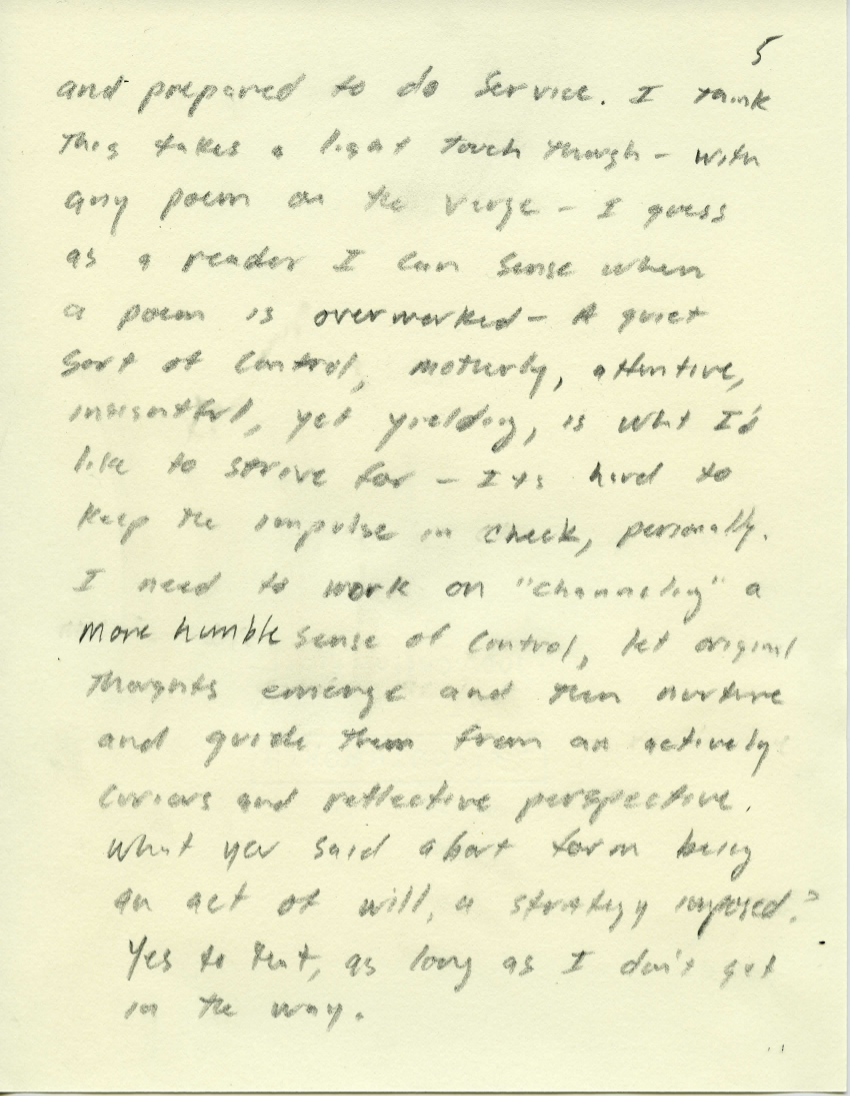 5
and prepared to do service. I think
this takes a light touch though – with
any poem on the verge – I guess
as a reader I can sense when
a poem is overworked – A quiet
sort of control, motherly, attentive,
insightful, yet yielding, is what I'd
like to strive for – Its hard to
keep the impulse in check, personally.
I need to work on "channeling" a
more humble sense of control, let original
thoughts emerge and then nurture
and guide them from an actively
curious and reflective perspective.
What you said about form being
an act of will, a strategy imposed?
Yes to that, as long as I don't get
in the way.